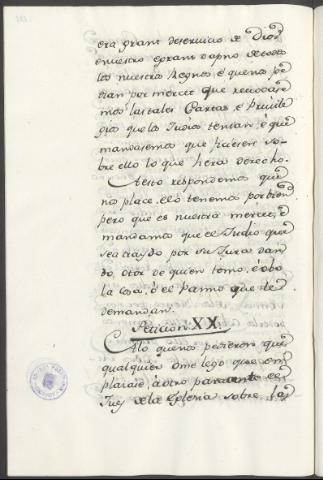 era grant deservicio de Dios,
e nuestro e grant dapno de todos
los nuestros Regnos, e que nos pe
dian por merced que revocase
mos las tales Cartas e Privile
gios que los Judios tenian, e que
mandasemos que ficiesen so-
bre ello lo que fuera derecho.
A esto respondemos que
nos place, e lo tenemos por bien
pero que es nuestra merced, e
mandamos que el Judio que
sea traydo por su Jura dan
do otor de quien tomo, o obo
la cosa, o el Panno que le
demandan.
Peticion XX.
A lo que nos pidieron que
qualquier ome lego que em
plazase, a otro para ante el
Juez de la Eglesia sobre las